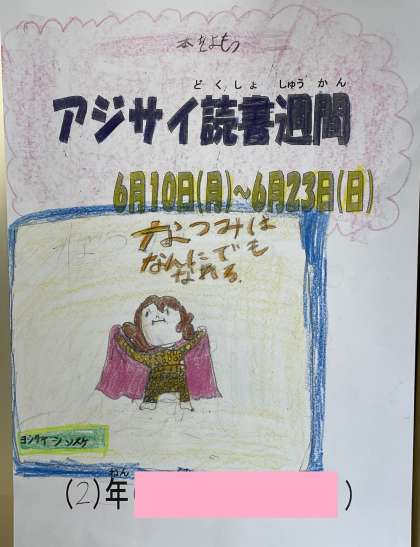 本をよもう
どくしょ しゅうかん
アジサイ読書週間
6月10日(月)~6月23日(日)
なつみは
なんにでも
なれる。
ヨシタケシンスケ
ねん
(2)年( )